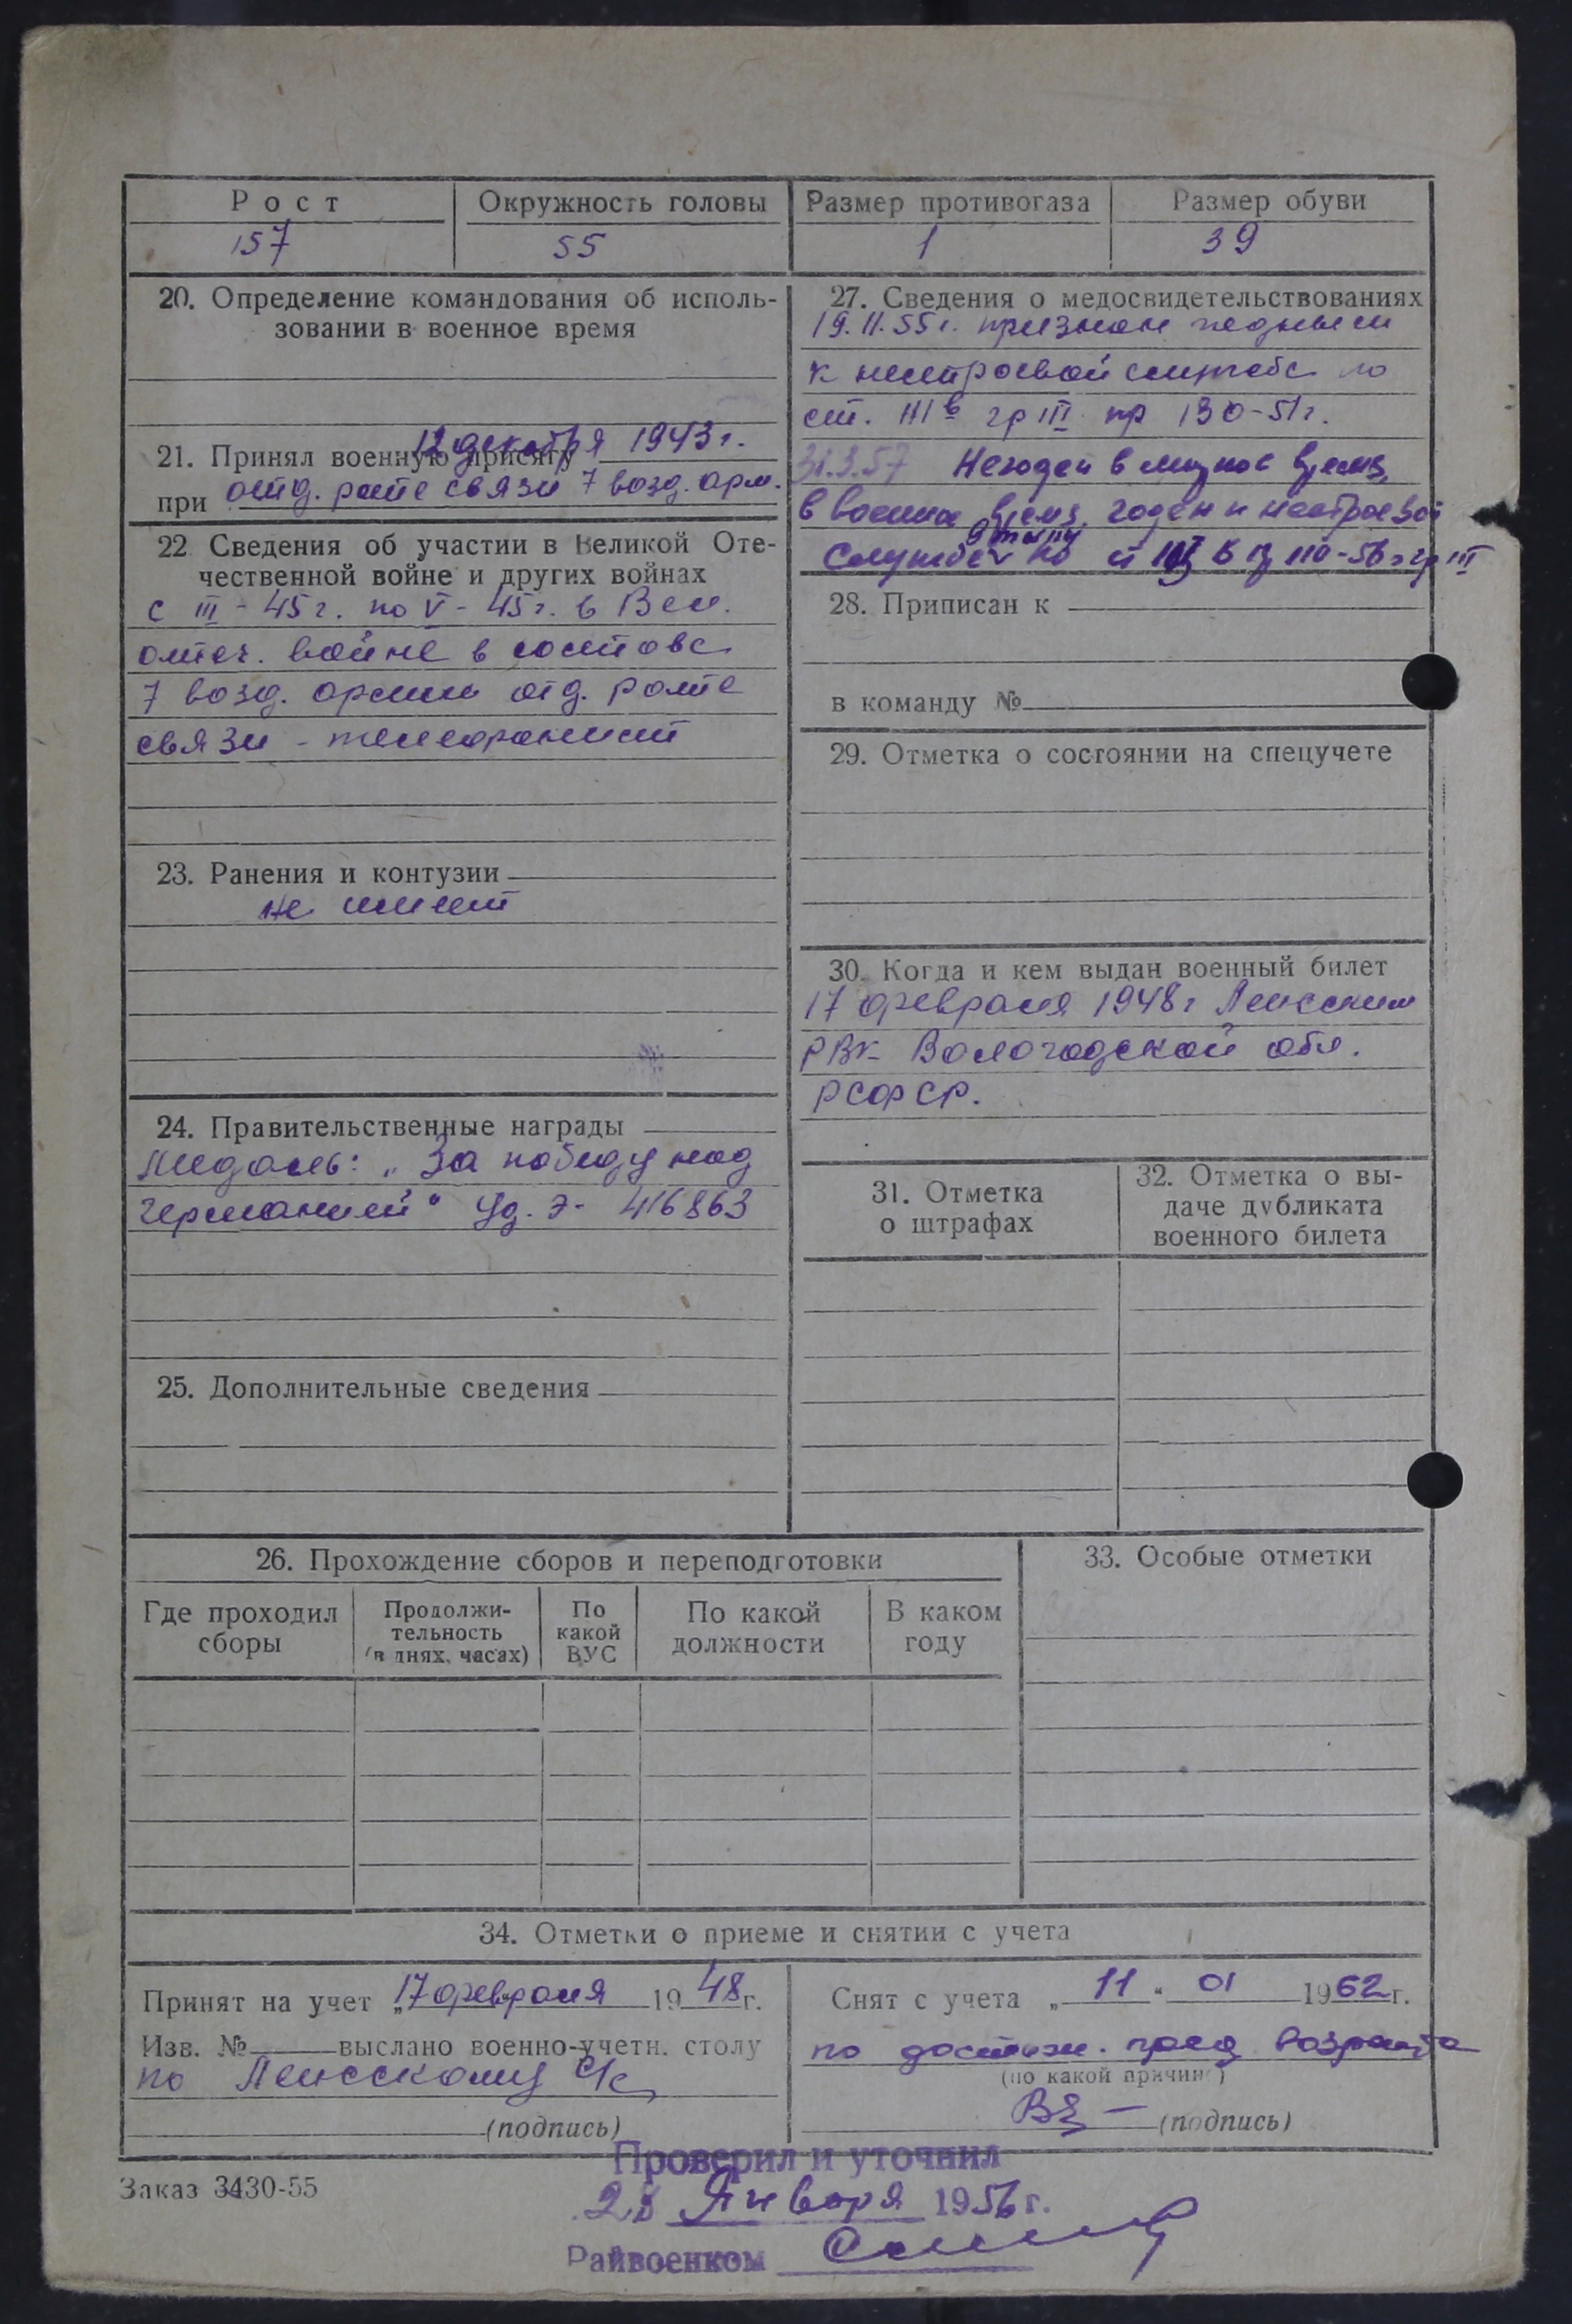 Рост
Окружность головы
Размер противогаза
Размер обуви
157
55
1
39
20. Определение командования об исполь-
зовании в военное время
21. Принял военную присягу 12 декабря 1943 г.
при отд. роте связи 7 возд. арм.
22 Сведения об участии в Великой Оте-
чественной войне и других войнах
с III - 45 г. по V - 45 г. в Вел.
отеч. войне в составе
7 возд. армии отд. роте
связи - телефонист
23. Ранения и контузии
не имеет
24. Правительственные награды
Медаль: „За победу над
Германией" Уд. Э- 416863
25. Дополнительные сведения
27. Сведения о медосвидетельствованиях
19.11.55 г. признан годным
к нестроевой службе по
ст. III в гр III пр 130-51 г.
31.3.57 Негоден в мирное время,
в военное время годен к нестроевой
службе по ст в 110-56 г гр III
28. Приписан к
в команду №
29. Отметка о состоянии на спецучете
30. Когда и кем выдан военный билет
17 февраля 1948 г
РВК Вологодской обл.
РСФСР.
31. Отметка
о штрафах
32. Отметка о вы-
даче дубликата
военного билета
26. Прохождение сборов и переподготовки
Где проходил
сборы
Продолжи-
тельность
(в днях, часах)
По
какой
ВУС
По какой
должности
В каком
году
33. Особые отметки
34. Отметки о приеме и снятии с учета
Принят на учет „17 февраля 1948 г.
Изв. № выслано военно-учетн. столу
по с/с
(подпись)
Снят с учета „11" 01 1962 г.
по достиж. пред. возраста
(по какой причине)
(подпись)
Заказ 3430-55
Проверил и уточнил
28 Января 1956 г.
Райвоенком